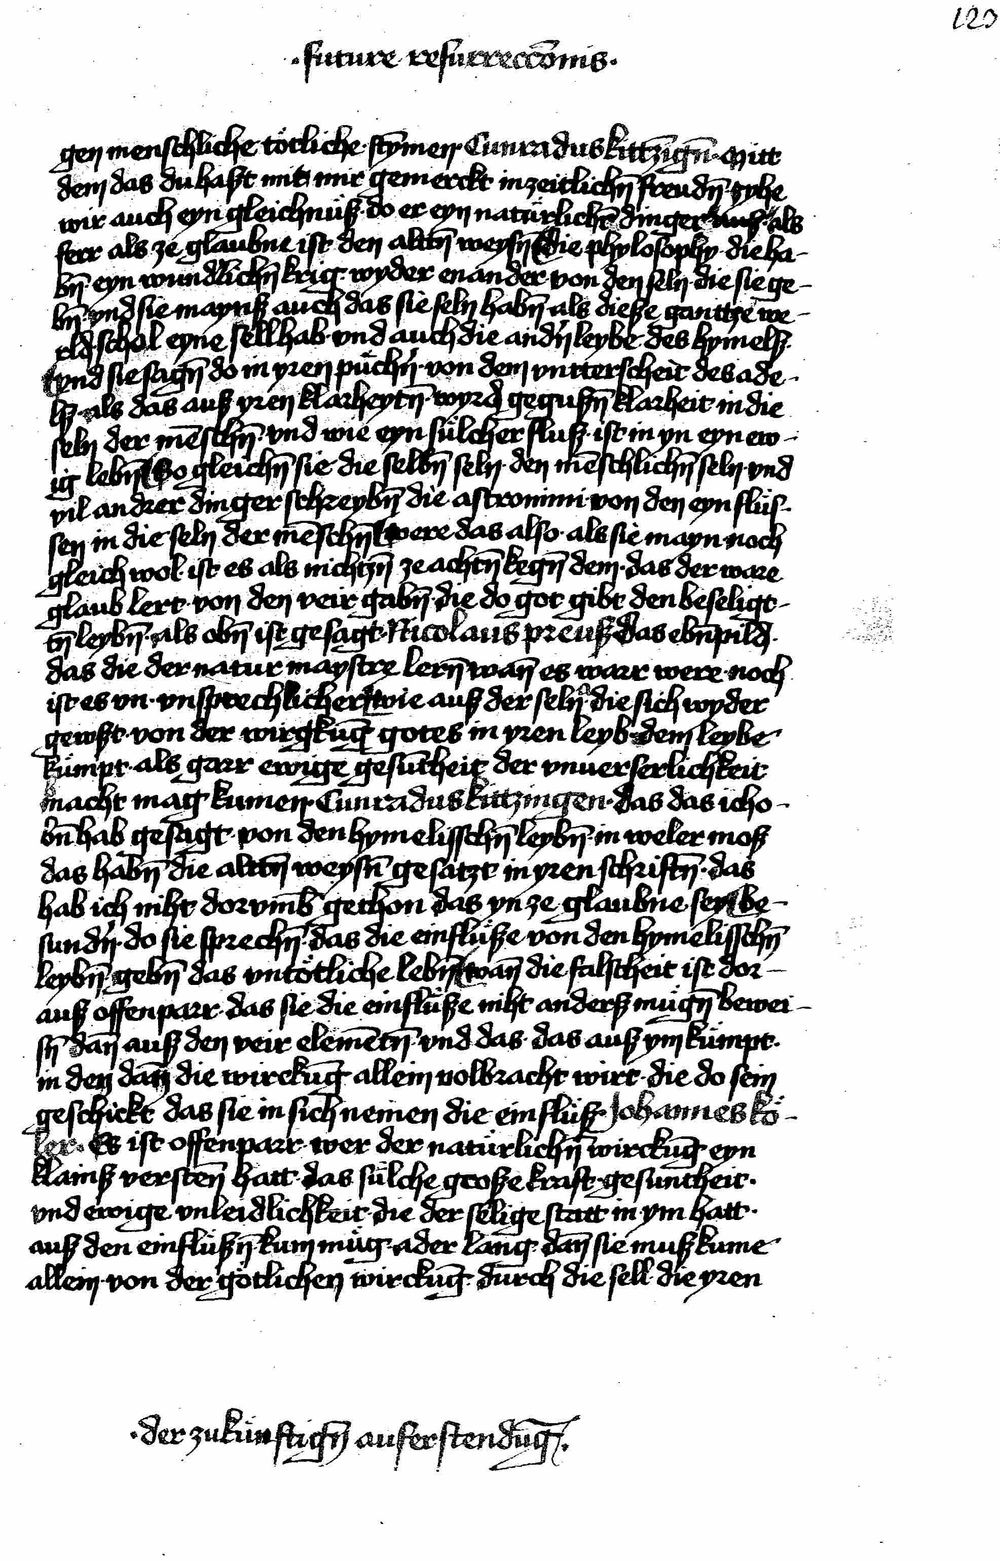 123
·future resurrecc̄onis·
gen menschliche tötliche stȳmen· Cunradus kittzīgn̄· Mitt
dem das du hast mit mir gemerckt in zeitlichn̄ freudn̄· zyhe
wir auch eyn gleichnüß· do er eyn natürlichē dinger auß· als
ferr als ze glaubne ist· den altn̄ weysn̄ die phylosophy· die ha-
bn̄ eyn wundˀlichn̄ krig· wyder enander· von den seln̄· die sie ge-
bn̄· vnd sie maynß auch das sie seln habn̄· als dieße gantze we-
rld· schol eyne sell hab· vnd auch die andˀn̄ leybe· des hymelß·
vnd sie sagn̄ do in yren püchˀn̄· von dem vntterscheit des ade-
lß· als das auß yren klarheytn̄· wyrd gegußn̄ klarheit in die
seln der mēschn̄· vnd wie eyn sülcher fluß· ist in yn eyn ew-
ig lebn̄ So gleichn̄ sie die selbn̄ seln· den mēschlichn̄ seln· vnd
vil andrer dinger schreybn̄ die astronimi· von den eynflüs-
sen in die seln der mēschn̄ were das also· als sie mayn· noch
gleich wol· ist es als nichtzn̄ ze achtn̄ kegn̄ dem· das der ware
glaub lert· von den veir gabn̄· die do got gibt den beseligt-
tn̄ leybn̄· als obn̄ ist gesagt· Nicolaus preuß das ebn̄pild·
das die der natur maystre lern̄ wan̄ es warr were· noch
ist es vn· vnsprechlicher wie auß der seln· die sich wyder
gewst· von der wirgkūg gotes in yren leyb· dem leybe
kümpt· als garr ewige gesūtheit der vnverserlichkeit
macht mag kumen· Cunradus kittzingen· das das ich o-
bn̄ hab gesagt· von den hymelisschn̄ leybn̄· in weler moß
das habn̄ die altn̄ weysn̄ gesatzt in yren schriftn̄· das
hab ich niht dorvmb gethon das yn ze glaubne sey be-
sundˀn̄· do sie sprechn̄· das die einflüße von den hymelisschn̄
leybn̄· gebn̄ das vntötliche lebn̄ wan̄ die falscheit ist dor-
auß offenparr· das sie die einflüße niht anderß mügn̄ bewei-
sn̄ dan̄ auß den veir elemētn̄· vnd das· das auß ym kümpt·
in den dan̄ die wirckūg allein volbracht wirt· die do sein
geschickt das sie in sich nemen die einflüß· Johannes kö-
ler· Es ist offenparr· wer der natürlichn̄ wirckūg eyn
klainß versten̄ hatt· das sülche große kraft· gesuntheit·
vnd ewige vnleidlichkeit· die der selige statt in ym hatt·
auß den einflüßn̄ kum müg· ader lang· dan̄ sie muß kume
allein· von der götlichen wirckūg· durch die sell· die yren
·der zukünftign̄ auferstendūg·